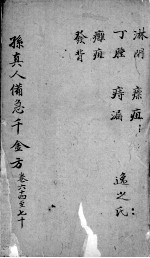 淋閉 瘰疽
丁腫 痔漏
癰疽
發背
逸之氏
孫真人備急千金方 卷六十四至七十